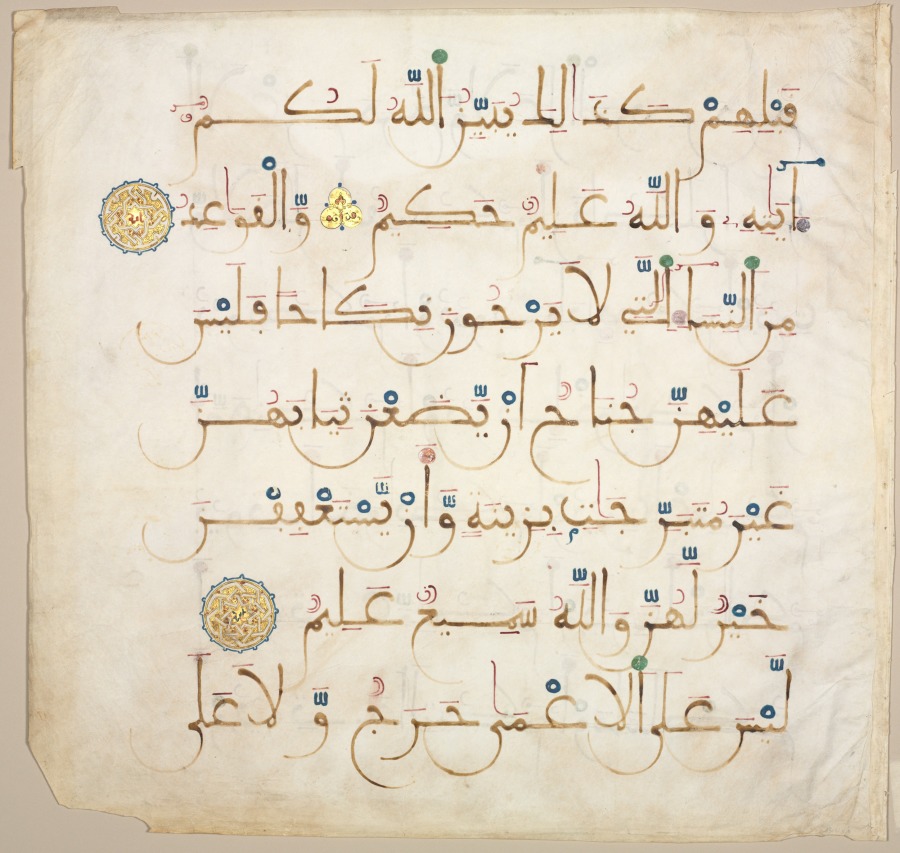 قَبْلِهِمْ كَذَٰلِكَ يُبَيِّنُ اللَّهُ لَكُمُ
ءَايَٰتِهِ وَاللَّهُ عَلِيمٌ حَكِيمٌ وَّالْقَوَٰعِدُ
مِنَ النِّسَآءِ الَّٰتِي لَا يَرْجُونَ نِكَاحًا فَلَيْسَ
عَلَيْهِنَّ جُنَاحٌ أَنْ يَّضَعْنَ ثِيَابَهُنَّ
غَيْرَ مُتَبَرِّجَٰتٍ بِزِينَةٍ وَّأَنْ يَّسْتَعْفِفْنَ
خَيْرٌ لَّهُنَّ وَاللَّهُ سَمِيعٌ عَلِيمٌ
لَّيْسَ عَلَى الْأَعْمَىٰ حَرَجٌ وَّلَا عَلَى